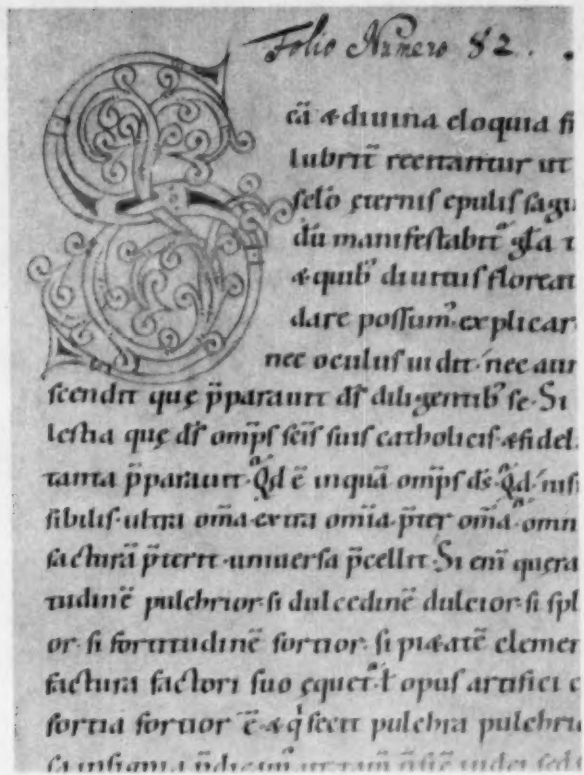 Folio Numero 82.
S
cã & diuina eloquia fi
lubrit̃ recitantur ut
selõ ęternis epulis sagi
dũ manifestabit̃ gl̃a
& quib᷒ diutius floreat
dare possum᷒ explicar
nec oculus uidit nec aur
scendit quę p̃parauit dſ̃ diligentib᷒ se. Si
lestia quę dſ̃ omp̃s scĩs suis catholicis & fidel
tanta p̃parauit. Qd ẽ inquã omp̃s dſ̃. Qd nisi
sibilis. ultra omĩa extra omĩa p̃ter omĩa omn
facturã p̃terit. uniuersa p̃cellit. Si enĩ quęra
tudinẽ pulchrior. si dulcedinẽ dulcior. si spl
or. si fortitudinẽ fortior. si pi&atẽ clemen
factura factori suo ęquet. ł opus artifici c
fortia fortior ẽ & q' fecit pulchra pulchri